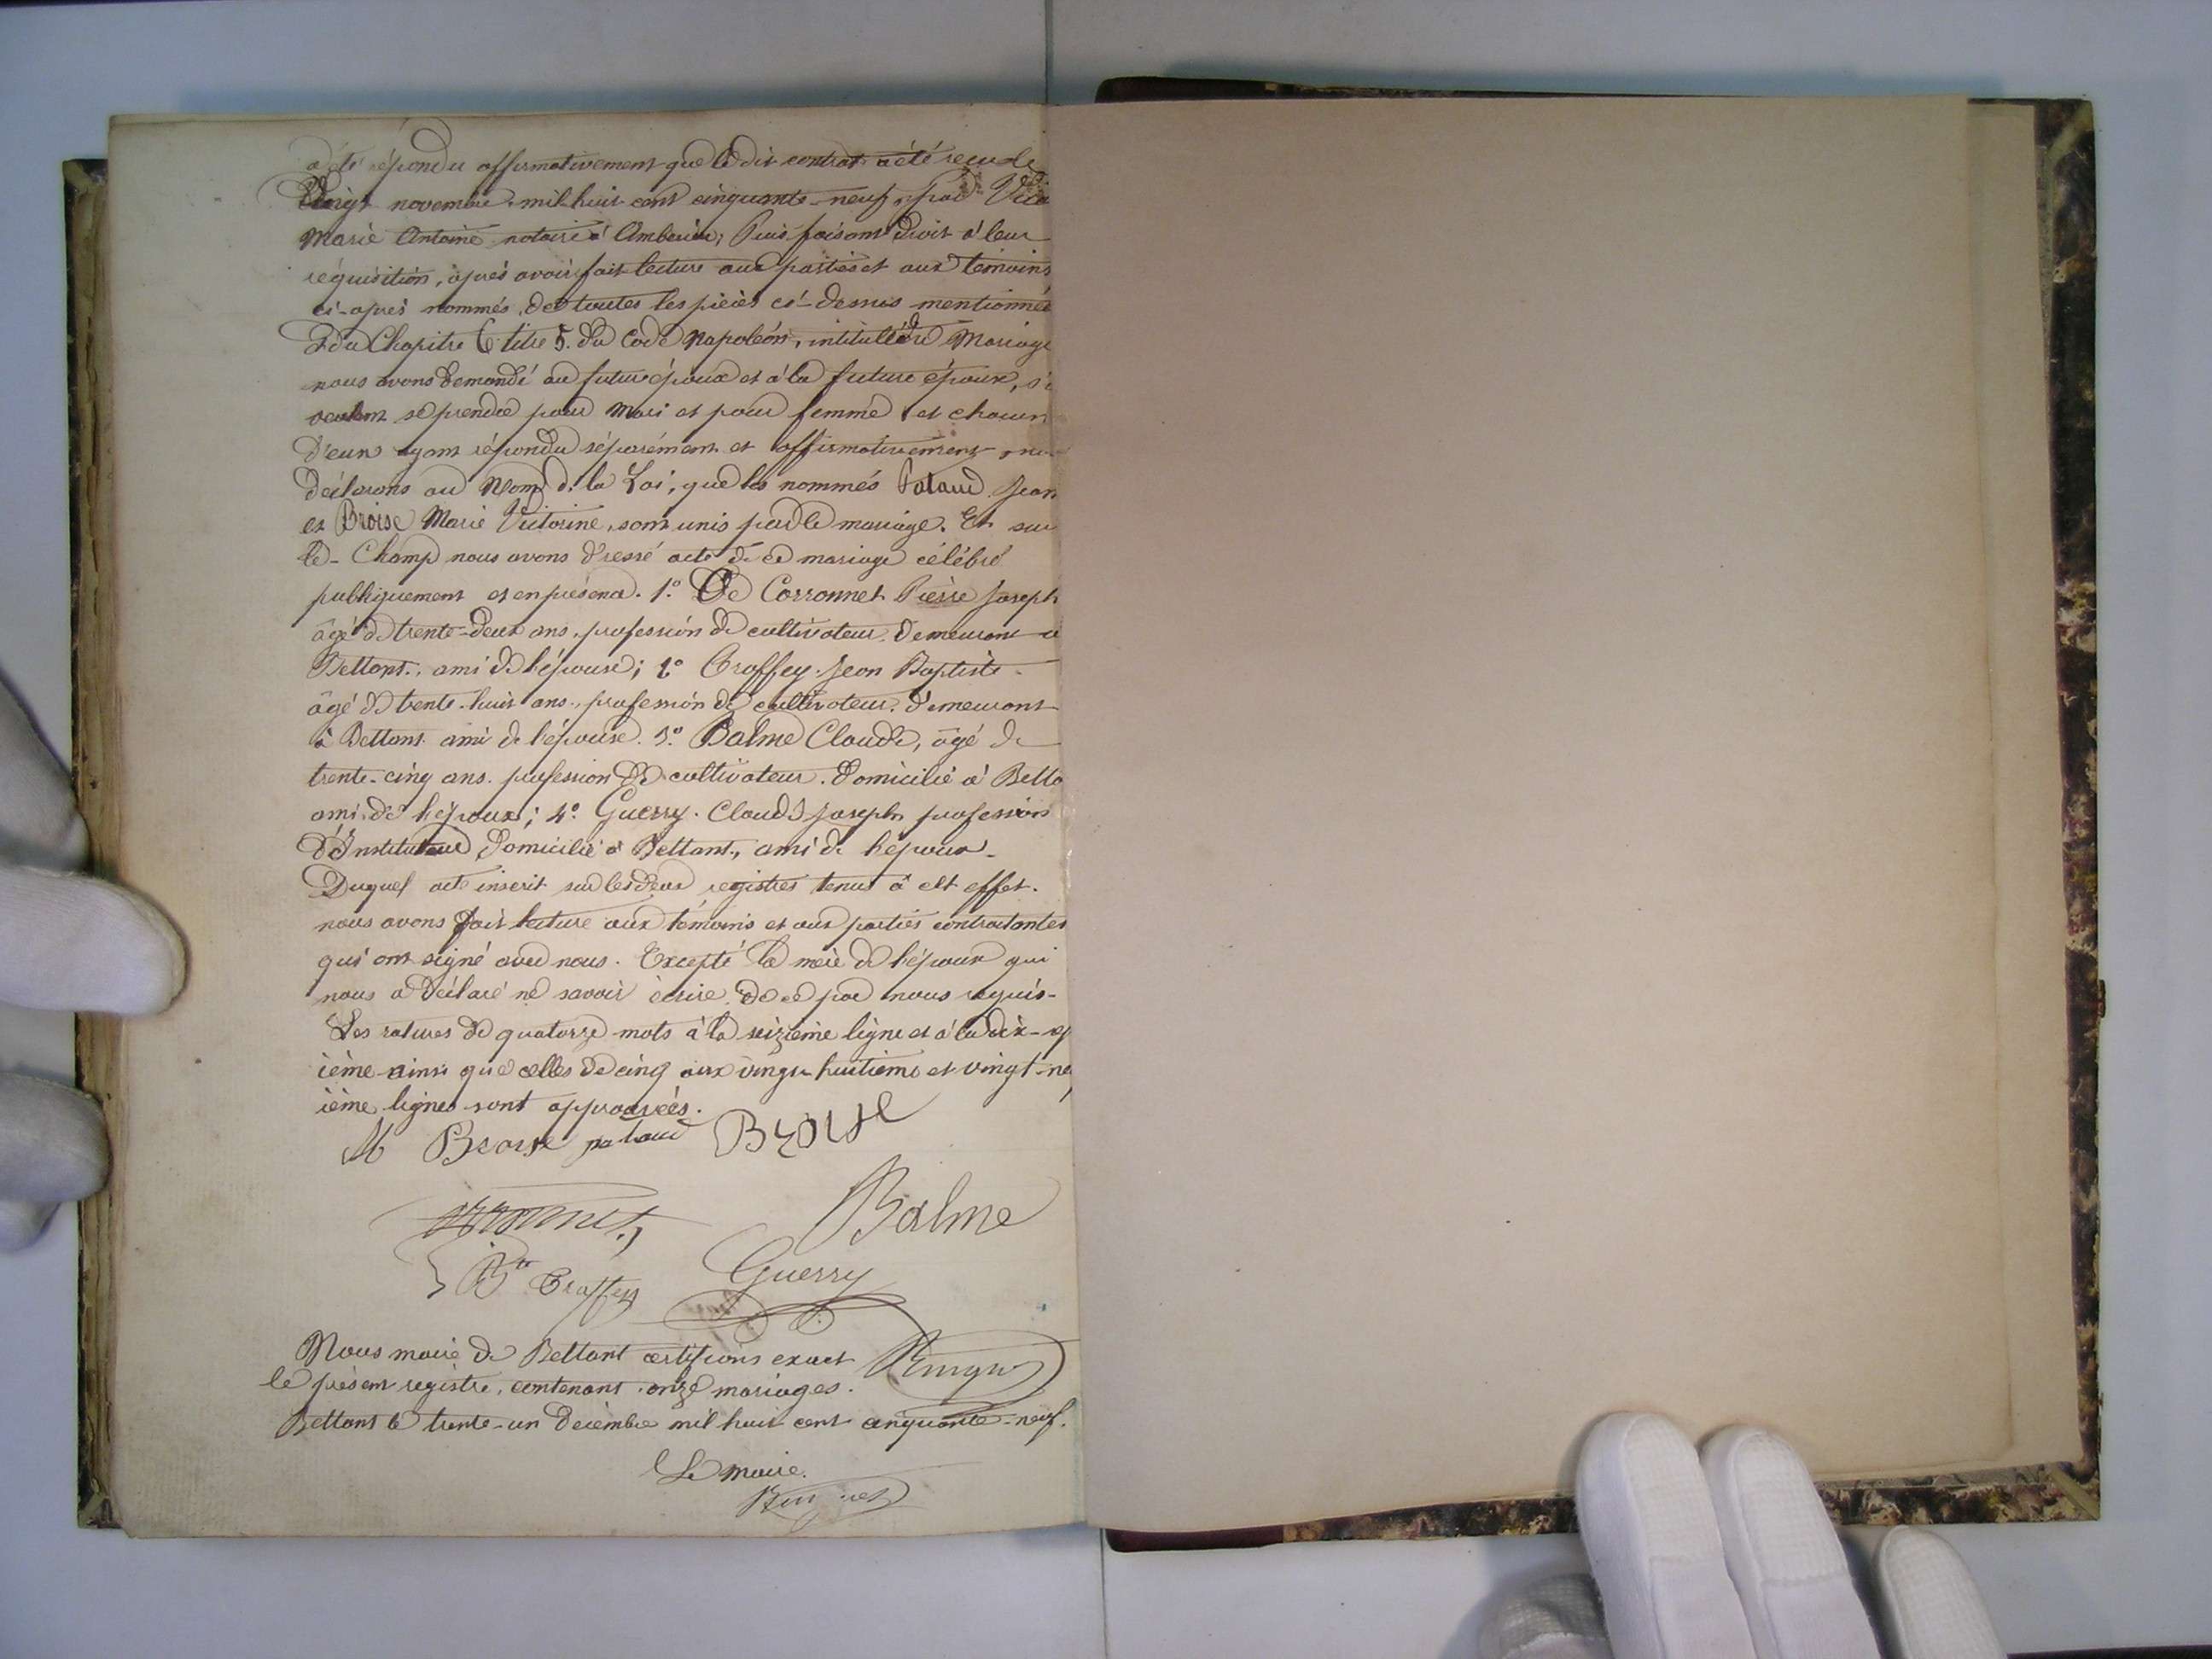 a été répondu affirmativement que le dit contrat a été reçu le
vingt novembre, mil huit cent cinquante-neuf, par
Marie Antoine notaire à Ambérieu; Puis faisant droit à leur
réquisition, après avoir fait lecture aux parties et aux témoins
ci-après nommés, de toutes les pièces ci-dessus mentionnées
& du Chapitre 6 titre 5. du Code Napoléon, intitullé du Mariage
nous avons demandé au futur époux et à la future épouse, s'i
veulent se prendre pour Mari et pour femme et chacun
d'eux ayant répondu séparément et affirmativement, nous
déclarons au Nom de la Loi, que les nommés Pataud Jean
et Broise Marie Victorine, sont unis par le mariage. Et sur
le-Champ nous avons dressé acte de ce mariage célébré
publiquement et en présence. 1.° De Corronnet Pierre Joseph
âgé de trente-deux ans, profession de cultivateur demeurant à
Bettant, ami de l'épouse; 2.° Troffey Jean Baptiste
âgé de trente-huit ans, profession de cultivateur, demeurant
à Bettant ami de l'épouse. 3.° Balme Claude, âgé de
trente-cinq ans. profession de cultivateur. domicilié à Betta
ami de l'époux; 4.° Guerry. Claude Joseph profession
d'Instituteur domicilié à Bettant, ami de l'époux.
Duquel acte inscrit sur les deux registres tenus à cet effet.
nous avons fait lecture aux témoins et aux parties contractantes
qui ont signé avec nous. Excepté la mère de l'époux qui
nous a déclaré ne savoir écrire de ce par nous requis-
Les ratures de quatorze mots à la seizième ligne et à la dix-sep
ième ainsi que celles de cinq aux vingt-huitième et vingt-neu
ième lignes sont approuvées.
M Broise pataud Broise
Corronnet Balme
Bte Troffey Guerry
Nous maire de Bettant certifions exact
le présent registre, contenant onze mariages.
Bettant le trente-un décembre mil huit cent cinquante-neuf.
Le maire.